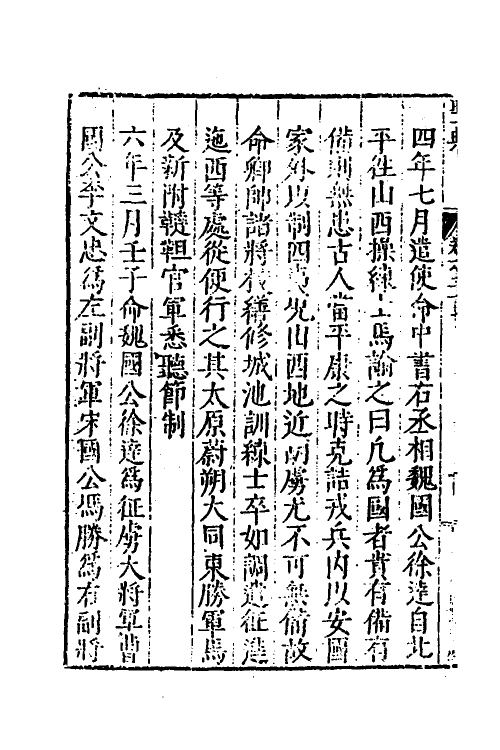 四年七月遣使命中書右丞相魏國公徐達自北
平徃山西操練士馬諭之曰凡爲國者貴有備有
備則無患古人當平康之時克詰戎兵内以安國
家外以制四夷况山西地近胡虜尤不可無備故
命卿帥諸將校繕修城池訓練士卒如調遣征進
迤西等處從便行之其太原蔚朔大同東勝軍馬
及新附韃靼官軍悉聽節制
六年三月壬子命魏國公徐達爲征虜大將軍曹
國公李文忠爲左副將軍宋國公馮勝爲右副將